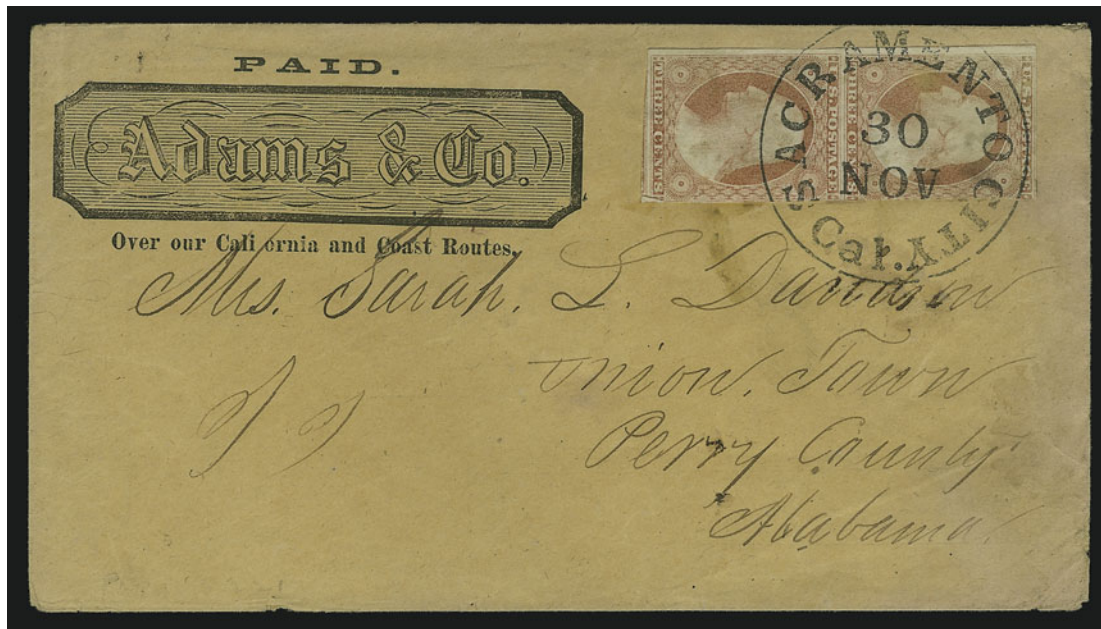 PAID.
Adams & Co.
Over our Cali ornia and Coast Routes.
U.S. POSTAGE
THREE CENTS
U.S. POSTAGE
THREE CENTS
SACRAMENTO CITY
30
NOV
Cal.
Mrs. Sarah. L. Davidson
Union. Town
Perry County
Alabama.